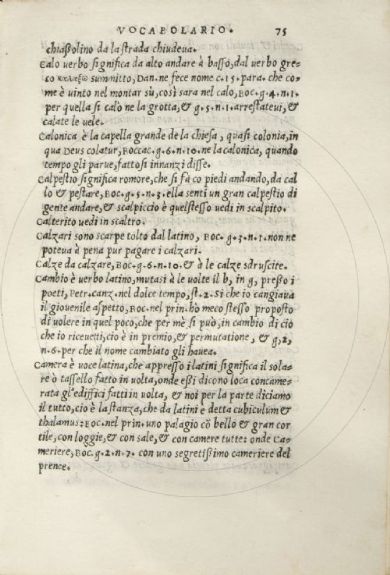 VOCABOLARIO. 75
chiaßolino da la strada chiudeua.
Calo uerbo significa da alto andare à basso, dal uerbo gre
co summitto, Dan. ne fece nome c. 15. para. che co-
me è uinto nel montar sù, così sara nel calo, Boc. g. 4. n. 1.
per quella si calò ne la grotta, & g. 5. n. 1. arrestateui, &
calate le uele.
Calonica è la capella grande de la chiesa, quasi colonia, in
qua Deus colatur, Boccac. g. 6. n. 10. ne la calonica, quando
tempo gli parue, fattosi innanzi disse.
Calpestio significa romore, che si fà co piedi andando, da cal
lo & pestare, Boc. g. 5. n. 3. ella senti un gran calpestio di
gente andare, & scalpiccio è quelstesso uedi in scalpito.
Calterito uedi in scaltro.
Calzari sono scarpe tolto dal latino, Boc. g. 3. n. 1. non ne
poteua à pena pur pagare i calzari.
Calze da calzare, Boc. g. 6. n. 10. & à le calze sdruscite.
Cambio è uerbo latino, mutasi à le uolte il b, in g, preßo i
poeti, Petr. canz. nel dolce tempo, st. 2. Si che io cangiaua
il giouenile aspetto, Boc. nel prin. hò meco stesso proposto
di uolere in quel poco, che per mè si può, in cambio di ciò
che io riceuetti, cio è in premio, & permutatione, & g. 2,
n. 6. per che il nome cambiato gli hauea.
Camera è uoce latina, che appresso i latini significa il sola-
re ò tassello fatto in uolta, onde eßi dicono loca concame-
rata gl'edifici fatti in uolta, & noi per la parte diciamo
il tutto, cio è la stanza, che da latini è detta cubiculum &
thalamus: Boc. nel prin. uno palagio cõ bello & gran cor
tile, con loggie, & con sale, & con camere tutte: onde Ca-
meriere, Boc. g. 2. n. 7. con uno segretißimo cameriere del
prence.